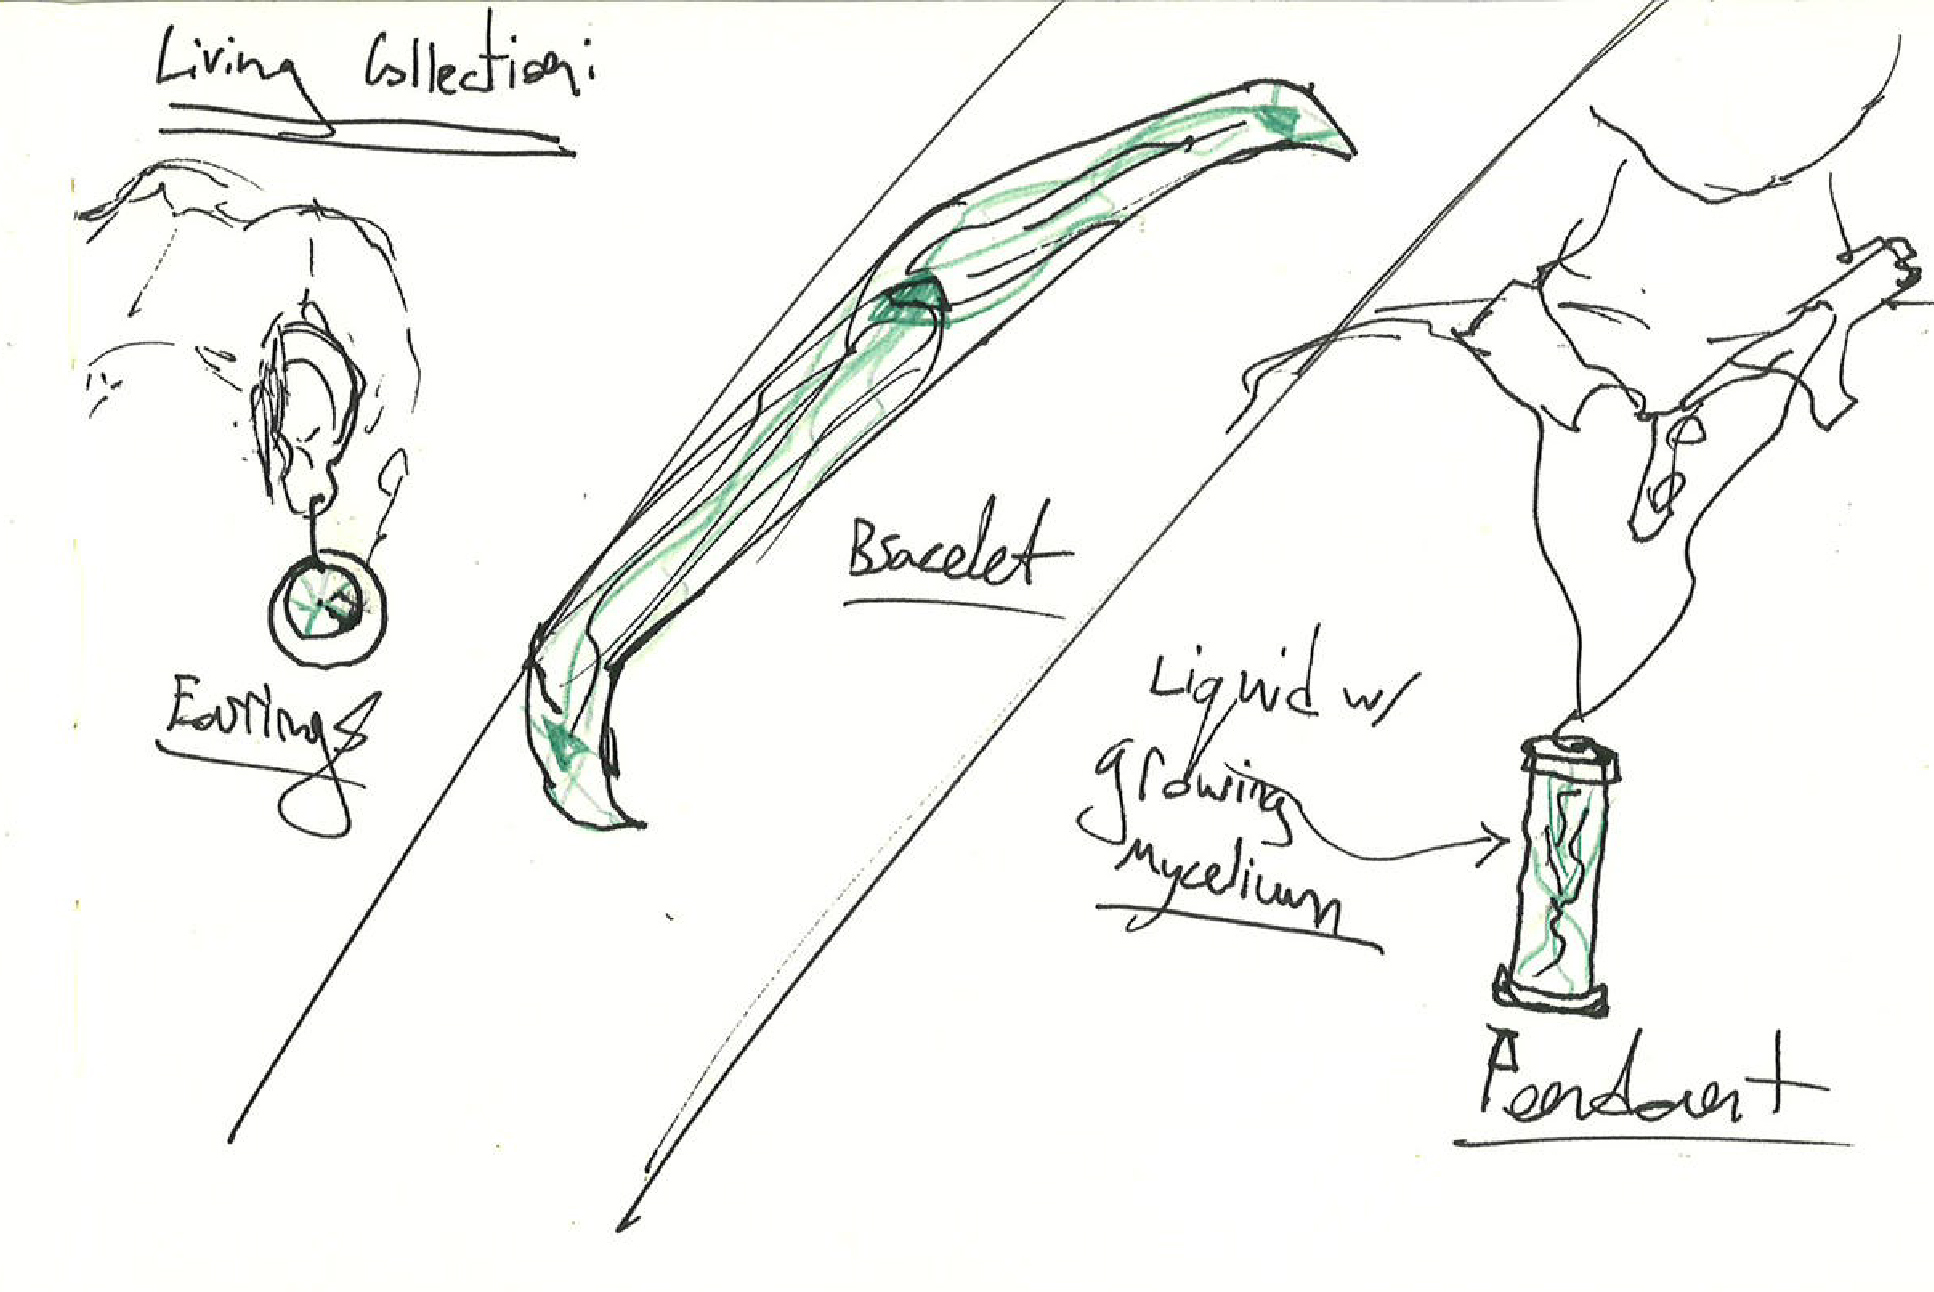 Living Collection:
Earrings
Bracelet
Liquid w/
growing
Mycelium
Pendant